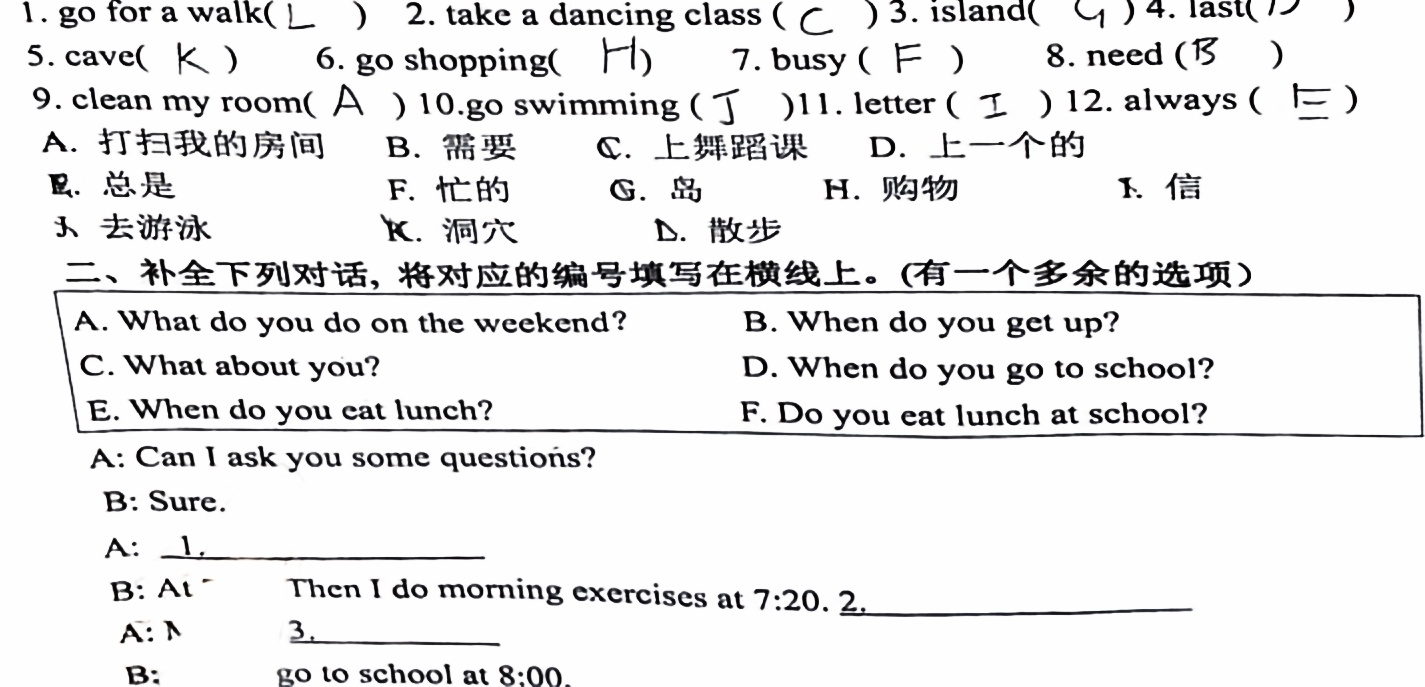 1. go for a walk( L ) 2. take a dancing class ( C ) 3. island( G ) 4. last( D )
5. cave( K ) 6. go shopping( H ) 7. busy ( F ) 8. need ( B )
9. clean my room( A ) 10.go swimming ( J ) 11. letter ( I ) 12. always ( E )
A. 打扫我的房间 B. 需要 C. 上舞蹈课 D. 上一个的
E. 总是 F. 忙的 G. 岛 H. 购物 I. 信
J. 去游泳 K. 洞穴 L. 散步
二、补全下列对话, 将对应的编号填写在横线上。(有一个多余的选项)
A. What do you do on the weekend? B. When do you get up?
C. What about you? D. When do you go to school?
E. When do you eat lunch? F. Do you eat lunch at school?
A: Can I ask you some questions?
B: Sure.
A: 1.
B: At Then I do morning exercises at 7:20. 2.
A: 3.
B: go to school at 8:00.